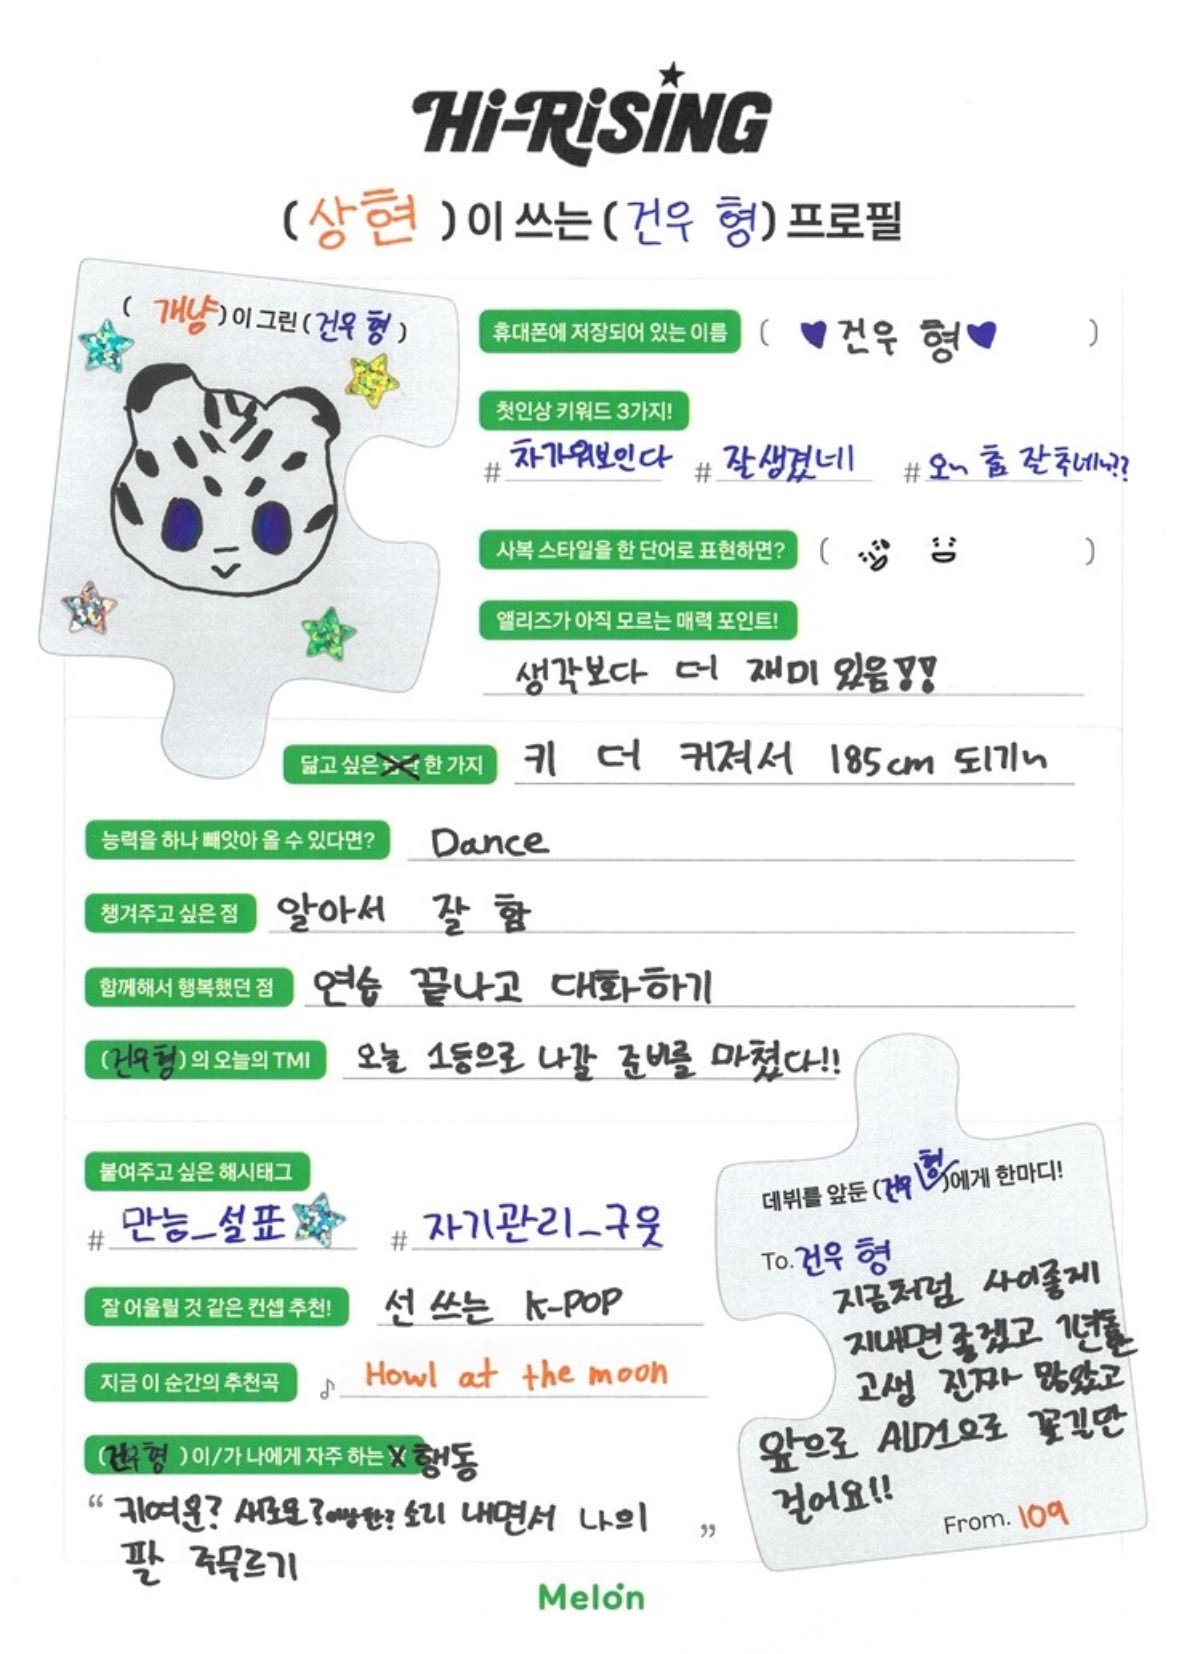 Hi-RiSING
(상현)이 쓰는 (건우 형) 프로필
(개냥)이 그린 (건우 형)
휴대폰에 저장되어 있는 이름 (♥건우 형♥)
첫인상 키워드 3가지!
# 차가워보인다 # 잘생겼네 # 오~ 춤 잘추네~??
사복 스타일을 한 단어로 표현하면? ( )
앨리즈가 아직 모르는 매력 포인트!
생각보다 더 재미 있음!!
닮고 싶은 한 가지 키 더 커져서 185cm 되기~
능력을 하나 빼앗아 올 수 있다면? Dance
챙겨주고 싶은 점 알아서 잘 함
함께해서 행복했던 점 연습 끝나고 대화하기
(건우형)의 오늘의 TMI 오늘 1등으로 나갈 준비를 마쳤다!!
붙여주고 싶은 해시태그
# 만능_설표 # 자기관리_구웃
잘 어울릴 것 같은 컨셉 추천! 선 쓰는 K-POP
지금 이 순간의 추천곡 ♪ Howl at the moon
(건우형)이/가 나에게 자주 하는 행동
“ 키여운? 새로운? 소리 내면서 나의
팔 주무르기 ”
데뷔를 앞둔 (건우 형)에게 한마디!
To. 건우 형
지금처럼 사이좋게
지내면 좋겠고 1년동
고생 진짜 많았고
앞으로 ALD1으로 꽃길만
걸어요!!
From. 109
Melon